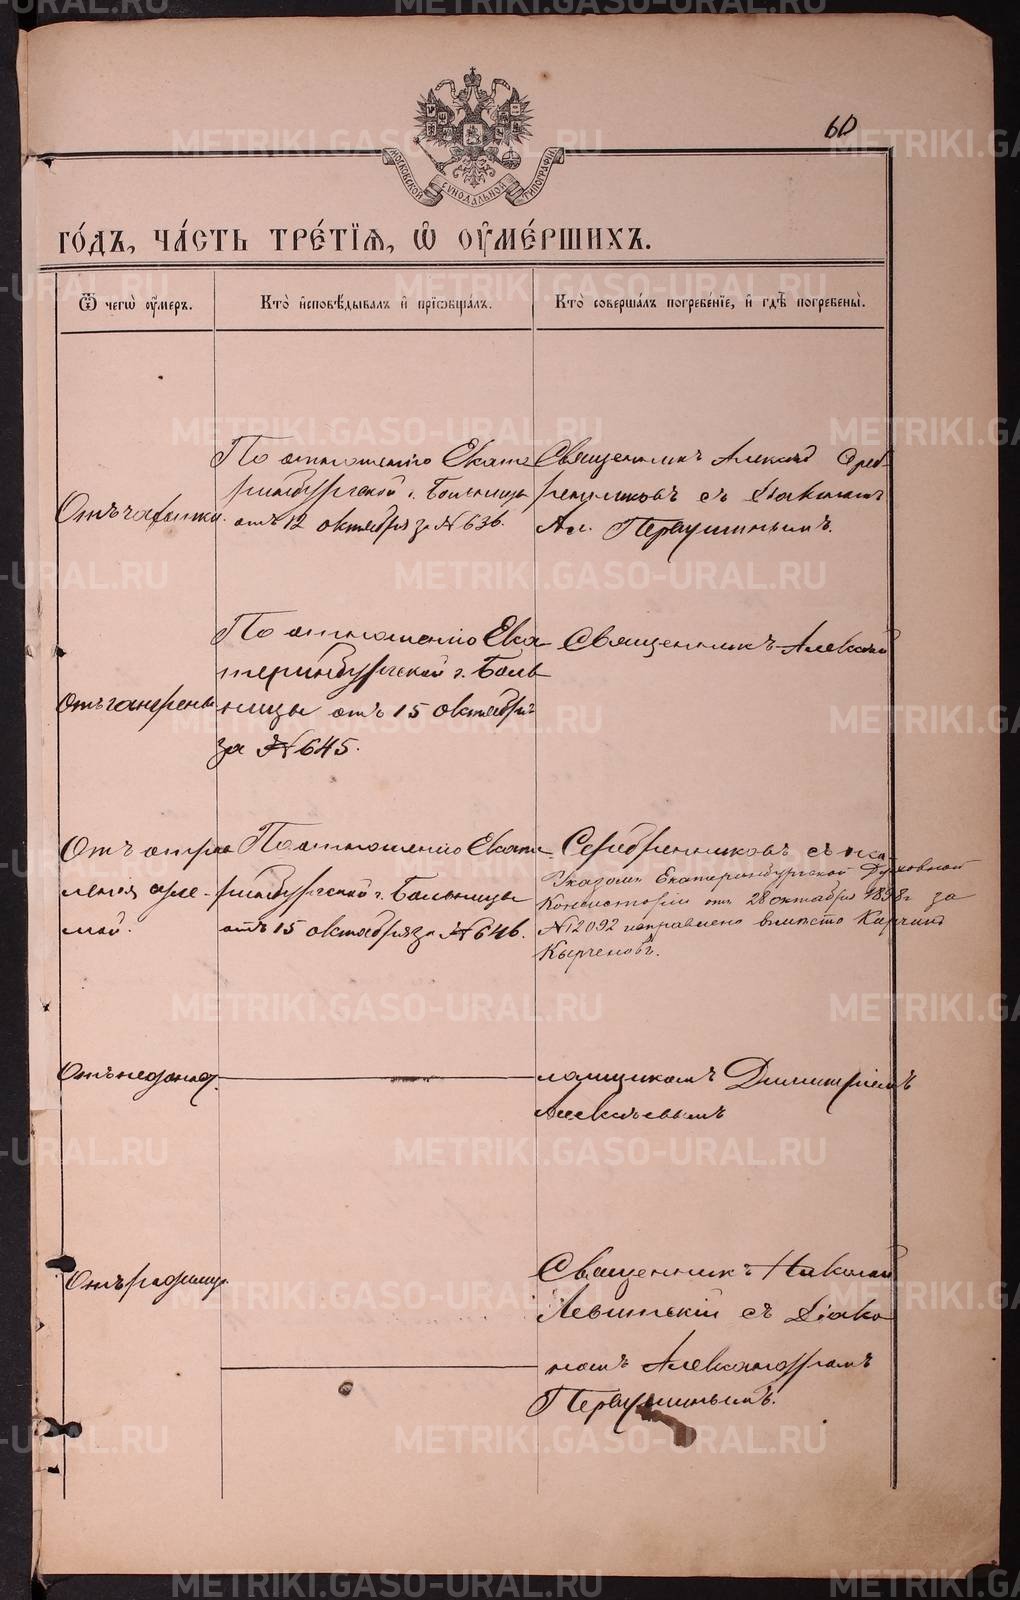 60
МОСКОВСКОЙ СѴНОДАЛЬНОЙ ТИПОГРАФІИ
ГО́ДЪ, ЧА́СТЬ ТРЕ́ТІЯ, Ѡ҆ ОУ҆МЕ́РШИХЪ.
Ѿ чегѡ̀ оу҆́меръ.
Кто̀ и҆сповѣ́дывалъ и҆ прїѡбща́лъ.
Кто̀ соверша́лъ погребе́нїе, и҆ гдѣ̀ погребены̀.
Отъ чахотки
По отношенію Екате
ринбургской г. Больницы
отъ 12 октября за № 636.
Священникъ Алексѣй Сереб
ренниковъ съ діакономъ
Ал. Первушинымъ.
Отъ гангрены
По отношенію Ека
теринбургской г. Боль
ницы отъ 15 октября
за № 645.
Священникъ Алексѣй
Отъ отрав
ленія
По отношенію Екате
ринбургской г. Больницы
отъ 15 октября за № 646.
Серебренниковъ съ пса
Указомъ Екатеринбургской Духовной
Консисторіи отъ 28 октября 1898 г за
№ 12092 исправлено вмѣсто
Кырченовъ.
Отъ недонос.
ломщикомъ Димитріемъ
Алексѣевымъ
Отъ родимца
Священникъ Николай
Левитскій съ діако
номъ Александромъ
Первушинымъ.
METRIKI.GASO-URAL.RU